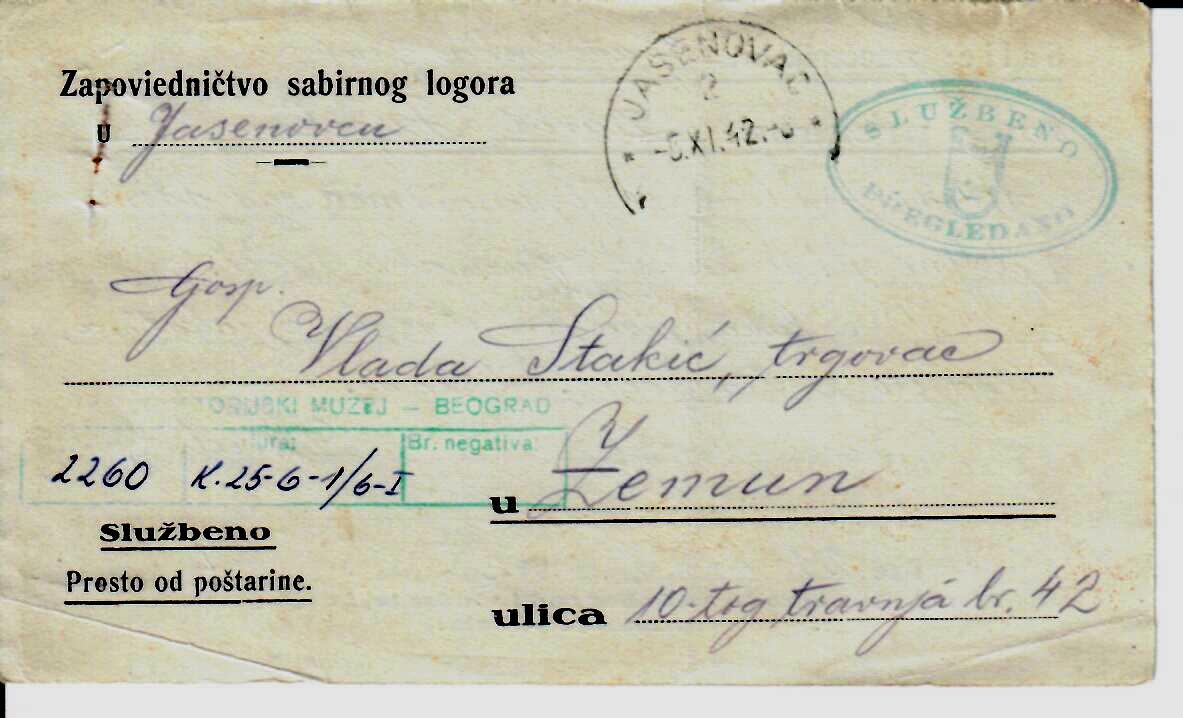 Zapoviedničtvo sabirnog logora
u Jasenovcu
JASENOVAC
2
XI.42.
SLUŽBENO
PREGLEDANO
Gosp.
Vlada Stakić, trgovac
TORIJSKI MUZEJ — BEOGRAD
Br. negativa:
2260 K.25-6-1/6-I
u Zemun
Službeno
Prosto od poštarine.
ulica 10-tog travnja br. 42